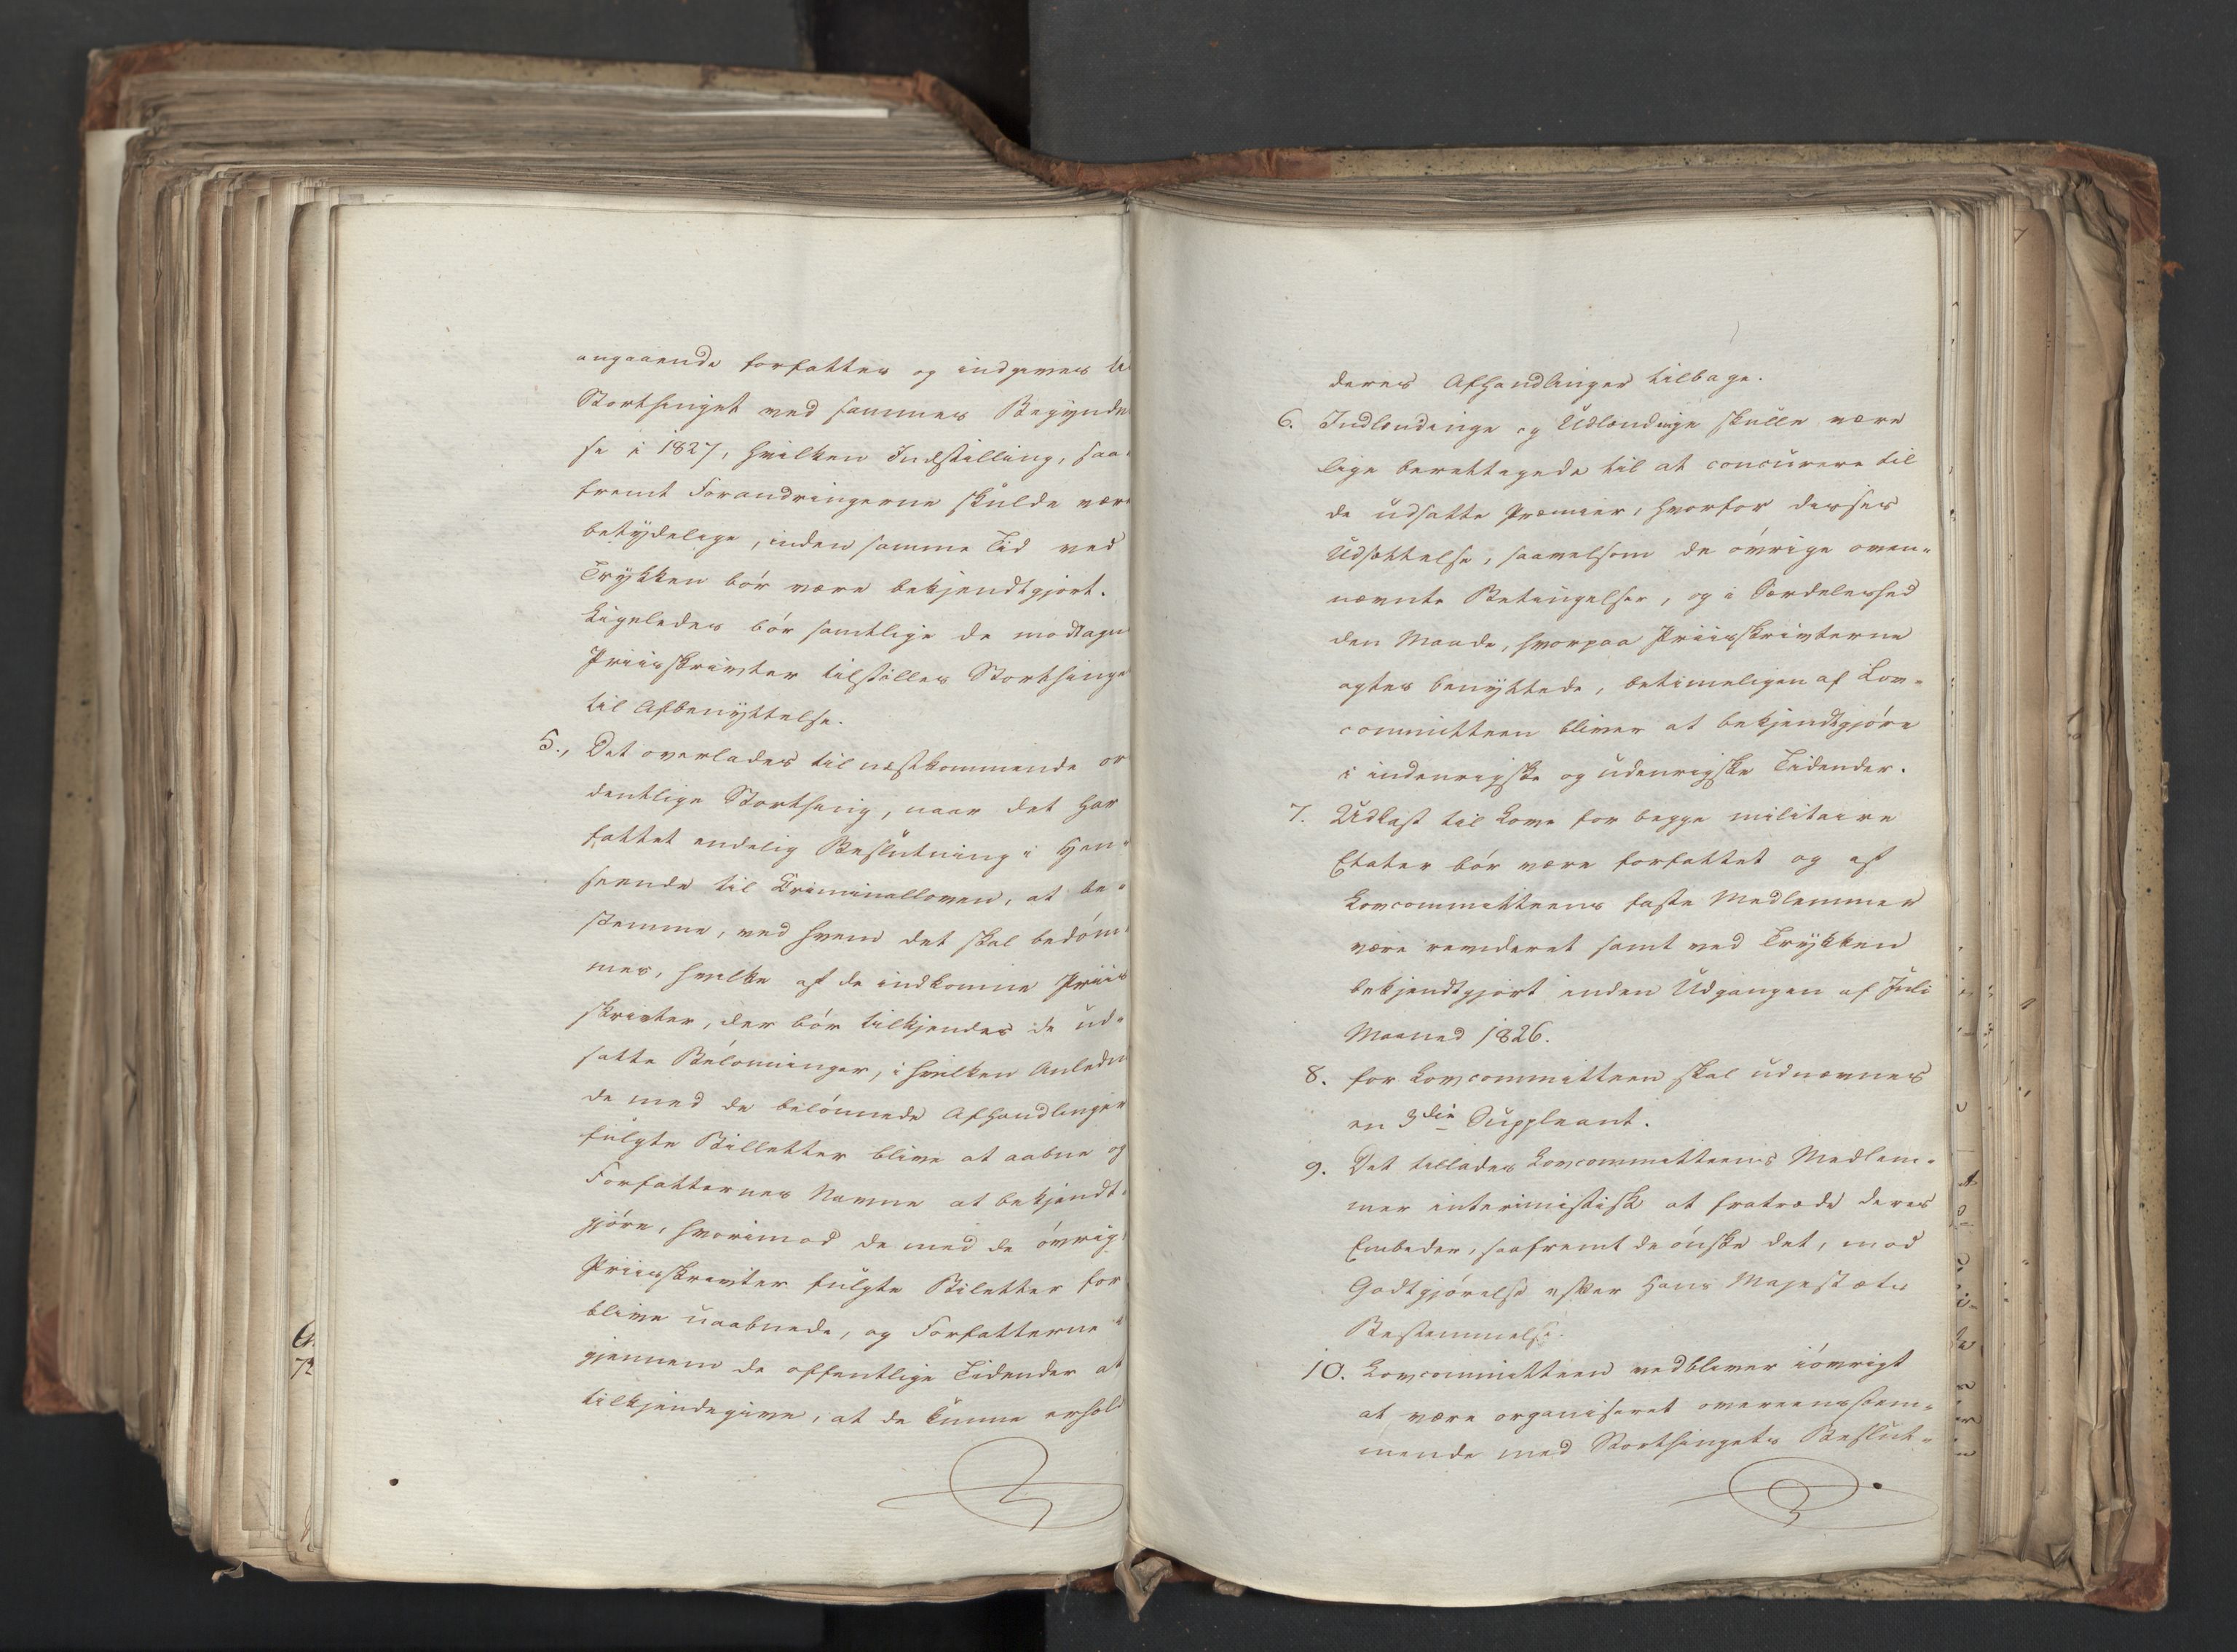 angaaende forfattes og indgives til
Storthinget ved sammes Begyndel
se i 1827, hvilken Indstilling, saa-
fremt Forandringerne skulde være
betydelige, inden samme Tid ved
Trykken bör være bekjendtgjort.
Ligeledes bör samtlige de modtagne
Priisskrivter tilstilles Storthinget
til Afbenyttelse.
5., Det overlades til næstkommende or
dentlige Storthing, naar det har
fattet endelig Beslutning i Hen-
seende til Criminalloven, at be-
stemme, ved hvem det skal bedöm-
mes, hvilke af de indkomne Priis
skrivter, der bör tilkjendes de ud-
satte Belönninger, i hvilken Anledn
de med de belönnede Afhandlinger
fulgte Billetter blive at aabne og
Forfatternes Navne at bekjendt-
gjöre, hvorimod de med de övrige
Priisskrivter fulgte Biletter for
blive uaabnede, og Forfatterne
gjennem de offentlige Tidender at
tilkjendegive, at de kunne erhold
deres Afhandlinger tilbage.
6. Indlændinge og Udlændinge skulle være
lige berettigede til at concurere til
de udsatte Præmier, hvorfor disses
Udsættelse, saavelsom de övrige oven-
nævnte Betingelser, og i Særdeleshed
den Maade, hvorpaa Priisskrivterne
agtes benyttede, betimeligen af Lov-
committeen bliver at bekjendtgjöre
i indenrigske og udenrigske Tidender.
7. Udkast til Love for begge militaire
Etater bör være forfattet og af
Lovcommitteens faste Medlemmer
være revideret samt ved Trykken
bekjendtgjort inden Udgangen af Juli
Maaned 1826.
8. for Lovcommitteen skal udnævnes
en 3die Suppleant.
9. Det tillades Lovcommitteens Medlem-
mer interimistisk at fratræde deres
Embeder, saafremt de önske det, mod
Godtgjörelse efter Hans Majestæts
Bestemmelse.
10. Lovcommitteen vedbliver iövrigt
at være organiseret overeensstem-
mende med Storthingets Beslut-